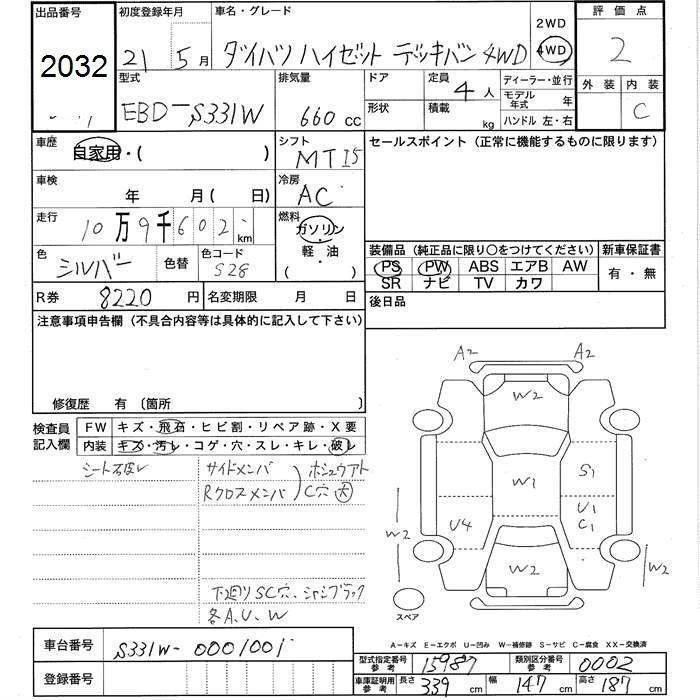 出品番号 初度登録年月 車名・グレード 2WD 評価点
2032 21 5月 ダイハツ ハイゼット デッキバン 4WD 4WD 2
型式 排気量 ドア 定員 ディーラー・並行 外装 内装
EBD-S331W 660cc 4人 モデル年式 年 C
形状 積載 kg ハンドル 左・右
車歴 シフト セールスポイント (正常に機能するものに限ります)
自家用・( ) MT I5
車検 冷房
年 月( 日) AC
走行 燃料
10万9千602 km ガソリン
軽・油
( )
装備品 (純正品に限り○をつけてください) 新車保証書
色 シルバー 色替 色コード S28
PS PW ABS エアB AW 有・無
SR ナビ TV カワ
R券 8220円 名変期限 月 日 後日品
注意事項申告欄 (不具合内容等は具体的に記入して下さい)
修復歴 有 (箇所 )
A2 A2
検査員記入欄 FW キズ・飛石・ヒビ割・リペア跡・X要
内装 キズ・汚レ・コゲ・穴・スレ・キレ・破レ
シート破レ サイドメンバ ホシュウアト
Rクロスメンバ C穴 大
W2
W1 S1
U1
C1
U4
W2 W2
W2
下回りSC穴、シャシブラック
各A、U、W
スペア
A-キズ E-エクボ U-凹み W-補修跡 S-サビ C-腐食 XX-交換済
車台番号 S331W-0001001
型式指定番号 参考 15987 類別区分番号 参考 0002
登録番号
車庫証明用 参考 長さ 339cm 幅 147cm 高さ 187cm